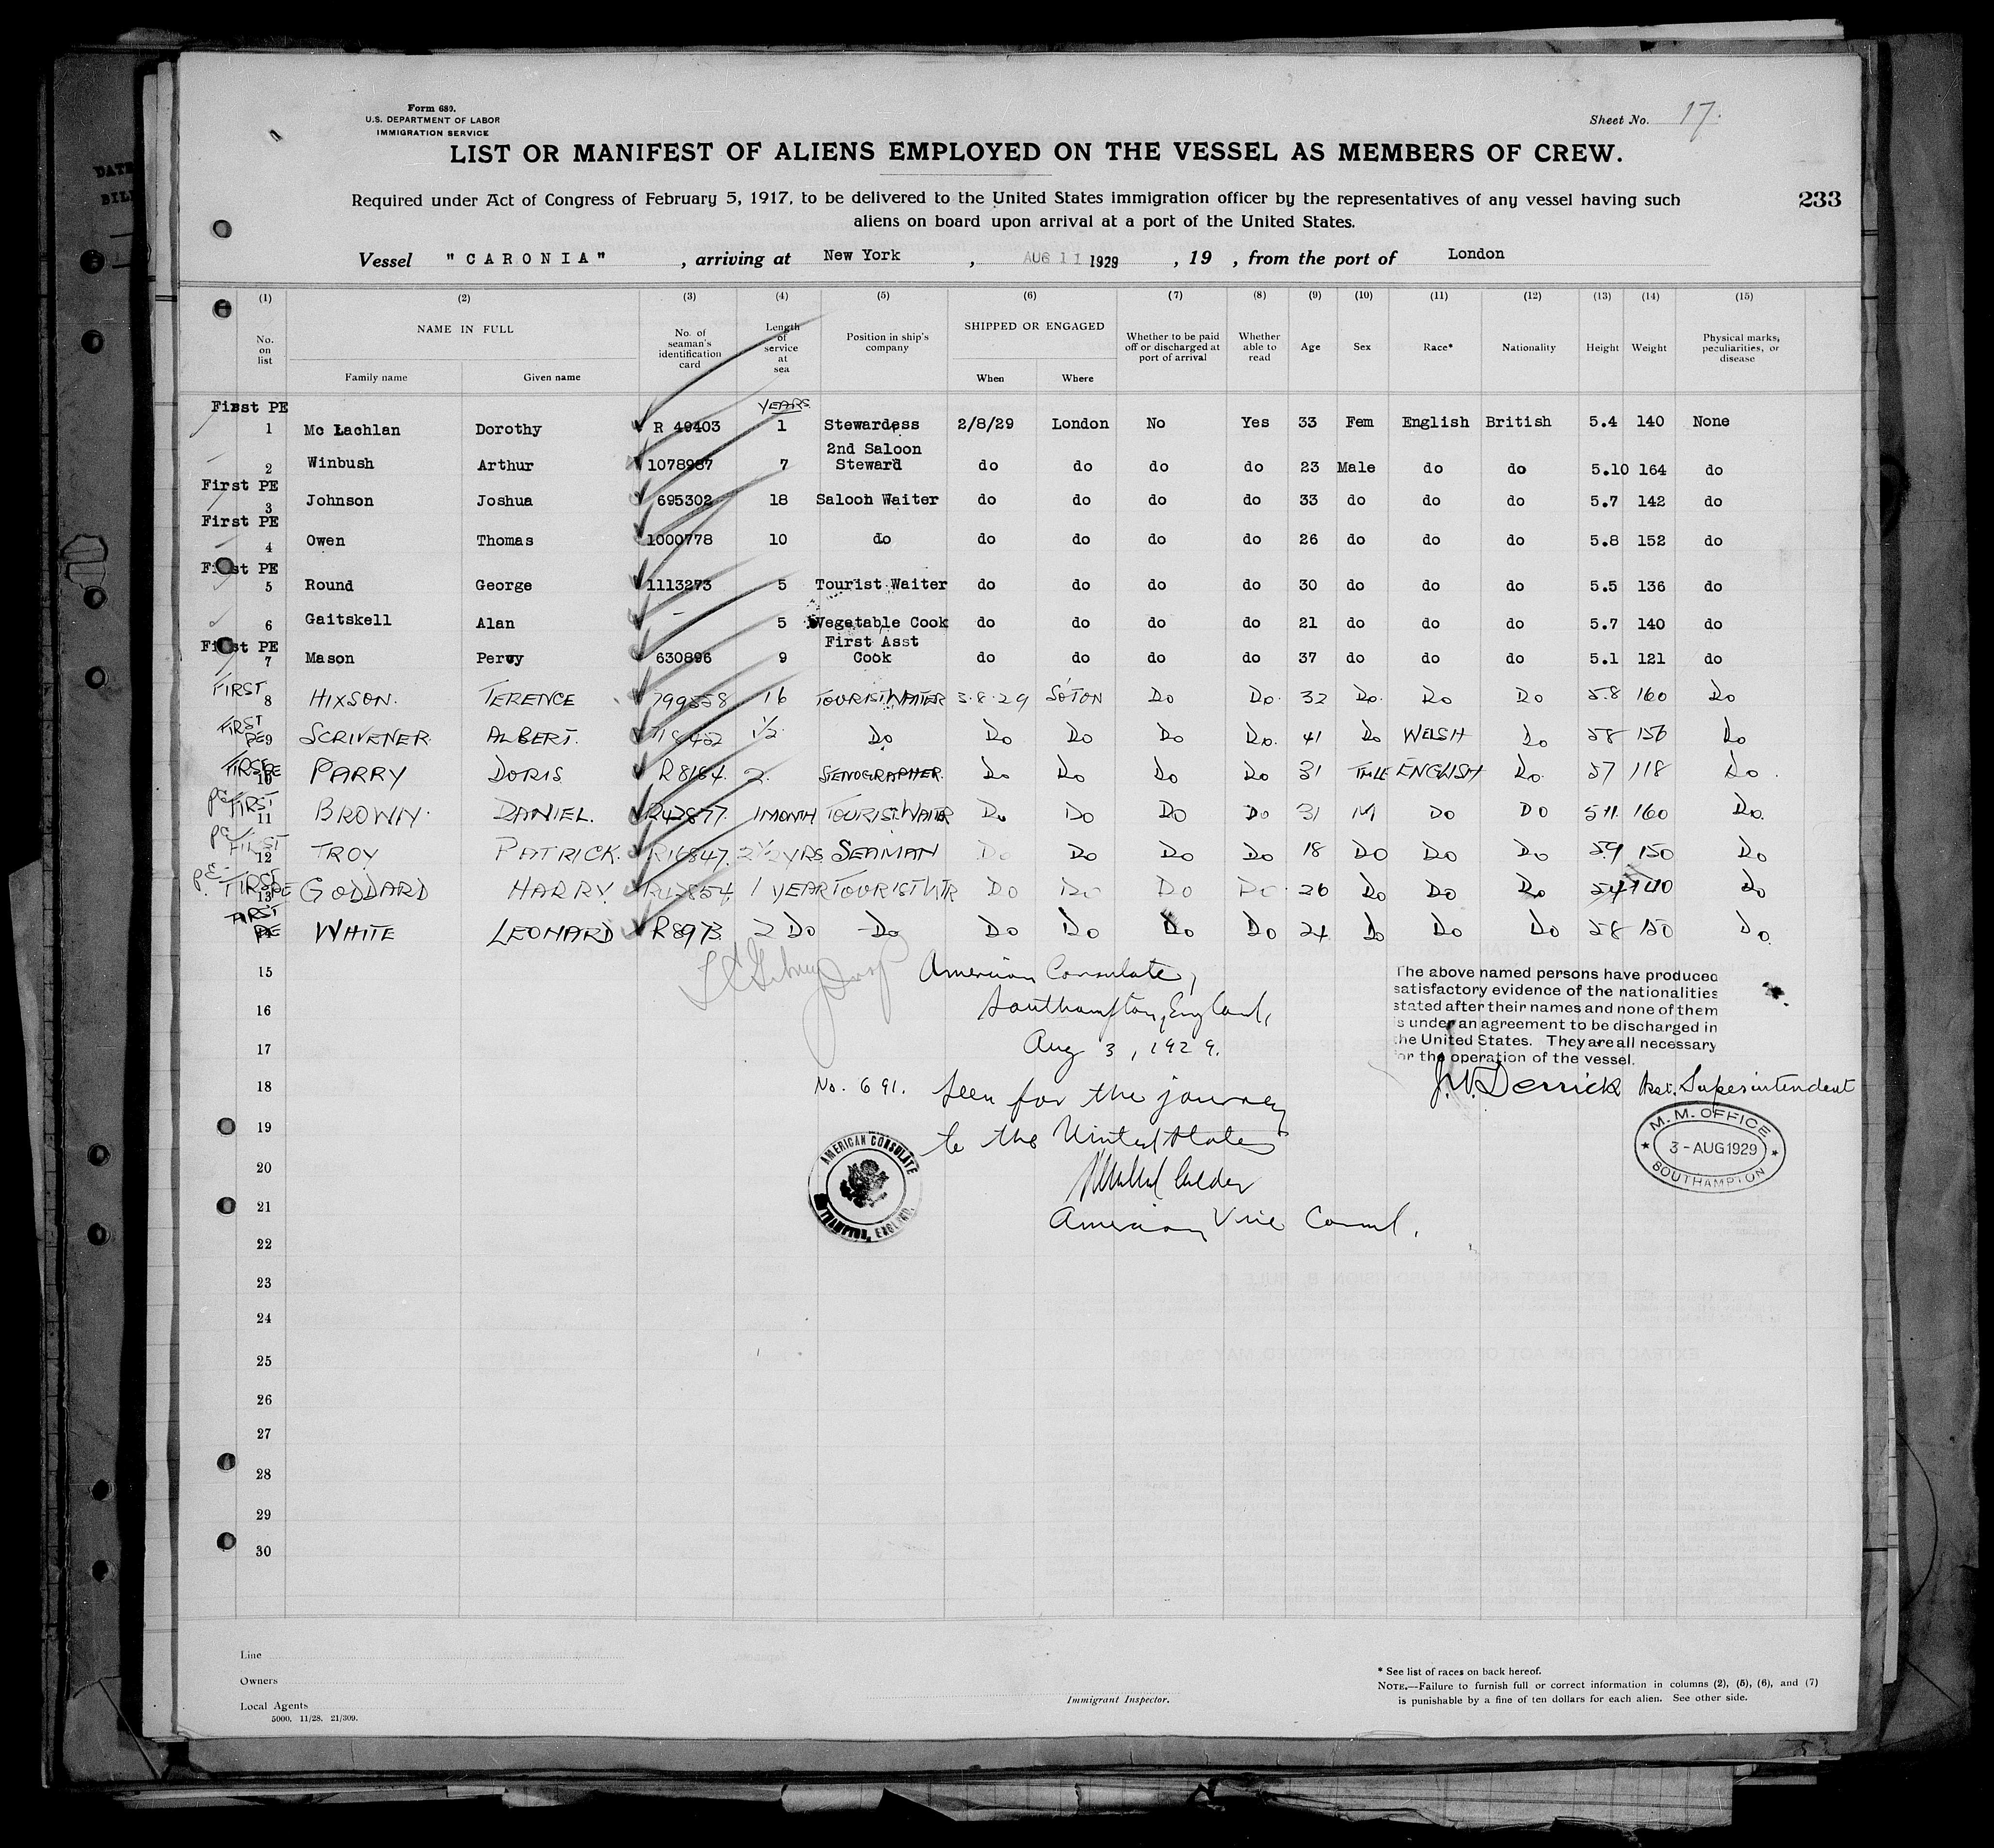 Form 680.
U.S. DEPARTMENT OF LABOR
IMMIGRATION SERVICE
Sheet No. 17.
LIST OR MANIFEST OF ALIENS EMPLOYED ON THE VESSEL AS MEMBERS OF CREW.
Required under Act of Congress of February 5, 1917, to be delivered to the United States immigration officer by the representatives of any vessel having such
aliens on board upon arrival at a port of the United States.
233
Vessel "CARONIA" , arriving at New York , AUG 11 1929 , 19 , from the port of London
(1) (2) (3) (4) (5) (6) (7) (8) (9) (10) (11) (12) (13) (14) (15)
No. on list
NAME IN FULL
Family name
Given name
No. of seaman's identification card
Length of service at sea
Position in ship's company
SHIPPED OR ENGAGED
When
Where
Whether to be paid off or discharged at port of arrival
Whether able to read
Age
Sex
Race*
Nationality
Height
Weight
Physical marks, peculiarities, or disease
YEARS
First PE
1 Mc Lachlan Dorothy R 49403 1 Stewardess 2/8/29 London No Yes 33 Fem English British 5.4 140 None
2 Winbush Arthur 1078987 7 2nd Saloon Steward do do do do 23 Male do do 5.10 164 do
First PE
3 Johnson Joshua 695302 18 Saloon Waiter do do do do 33 do do do 5.7 142 do
First PE
4 Owen Thomas 1000778 10 do do do do do 26 do do do 5.8 152 do
First PE
5 Round George 1113273 5 Tourist Waiter do do do do 30 do do do 5.5 136 do
6 Gaitskell Alan - 5 Vegetable Cook do do do do 21 do do do 5.7 140 do
First PE
7 Mason Percy 630896 9 First Asst Cook do do do do 37 do do do 5.1 121 do
FIRST
8 HIXSON. TERENCE 799558 16 TOURIST WAITER 3.8.29 SO'TON Do Do. 32 Do. Do Do 5.8 160 Do
FIRST PE
9 SCRIVENER. ALBERT. 1½ Do Do Do Do Do. 41 Do WELSH Do 58 156 Do
FIRST PE
10 PARRY DORIS R8164. 2. STENOGRAPHER. Do Do Do Do 31 ENGLISH Do. 57 118 Do.
PE FIRST
11 BROWN. DANIEL. R42877. 1 MONTH TOURIST WAITER Do Do Do Do 31 M Do Do 5 11. 160 Do.
PE FIRST
12 TROY PATRICK. R16847. 2½ YRS SEAMAN Do Do Do Do 18 Do Do Do 5.9 150 Do
PE FIRST PE
13 GODDARD HARRY. 1 YEAR TOURIST WTR Do Do Do Do. 26 Do Do Do 54 140 Do
FIRST PE
WHITE LEONARD R8973. 2 Do Do Do Do Do Do 24 Do Do Do 58 150 Do.
15
16
17
18
19
20
21
22
23
24
25
26
27
28
29
30
American Consulate,
Southampton, England,
Aug 3, 1929.
No. 691. Seen for the journey
to the United States
Calder
American Vice Consul.
AMERICAN CONSULATE
The above named persons have produced
satisfactory evidence of the nationalities
stated after their names and none of them
is under an agreement to be discharged in
the United States. They are all necessary
for the operation of the vessel.
J.V. Derrick Asst. Superintendent
M. M. OFFICE
3 - AUG 1929
SOUTHAMPTON
Line
Owners
Local Agents
5000. 11/28. 21/309.
Immigrant Inspector.
* See list of races on back hereof.
NOTE.—Failure to furnish full or correct information in columns (2), (5), (6), and (7)
is punishable by a fine of ten dollars for each alien. See other side.